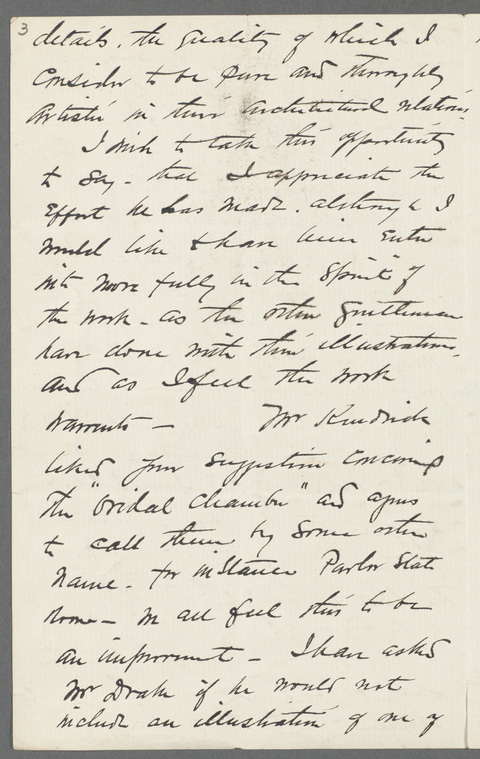 3
details. the quality of which I
consider to be pure and thoroughly
artistic in their architectural relations
I wish to take this opportunity
to say - that I appreciate the
effort he has made. although I
would like to have him enter
into more fully in the Spirit of
the work - as the other gentlemen
have done with their illustrations,
and as I feel the work
warrants — Mr Kendrick
liked your suggestion concerning
the "bridal chamber" and agrees
to call them by some other
name. for instance Parlor State
room — We all feel this to be
an improvement — I have asked
Mr Drake if he would not
include an illustration of one of